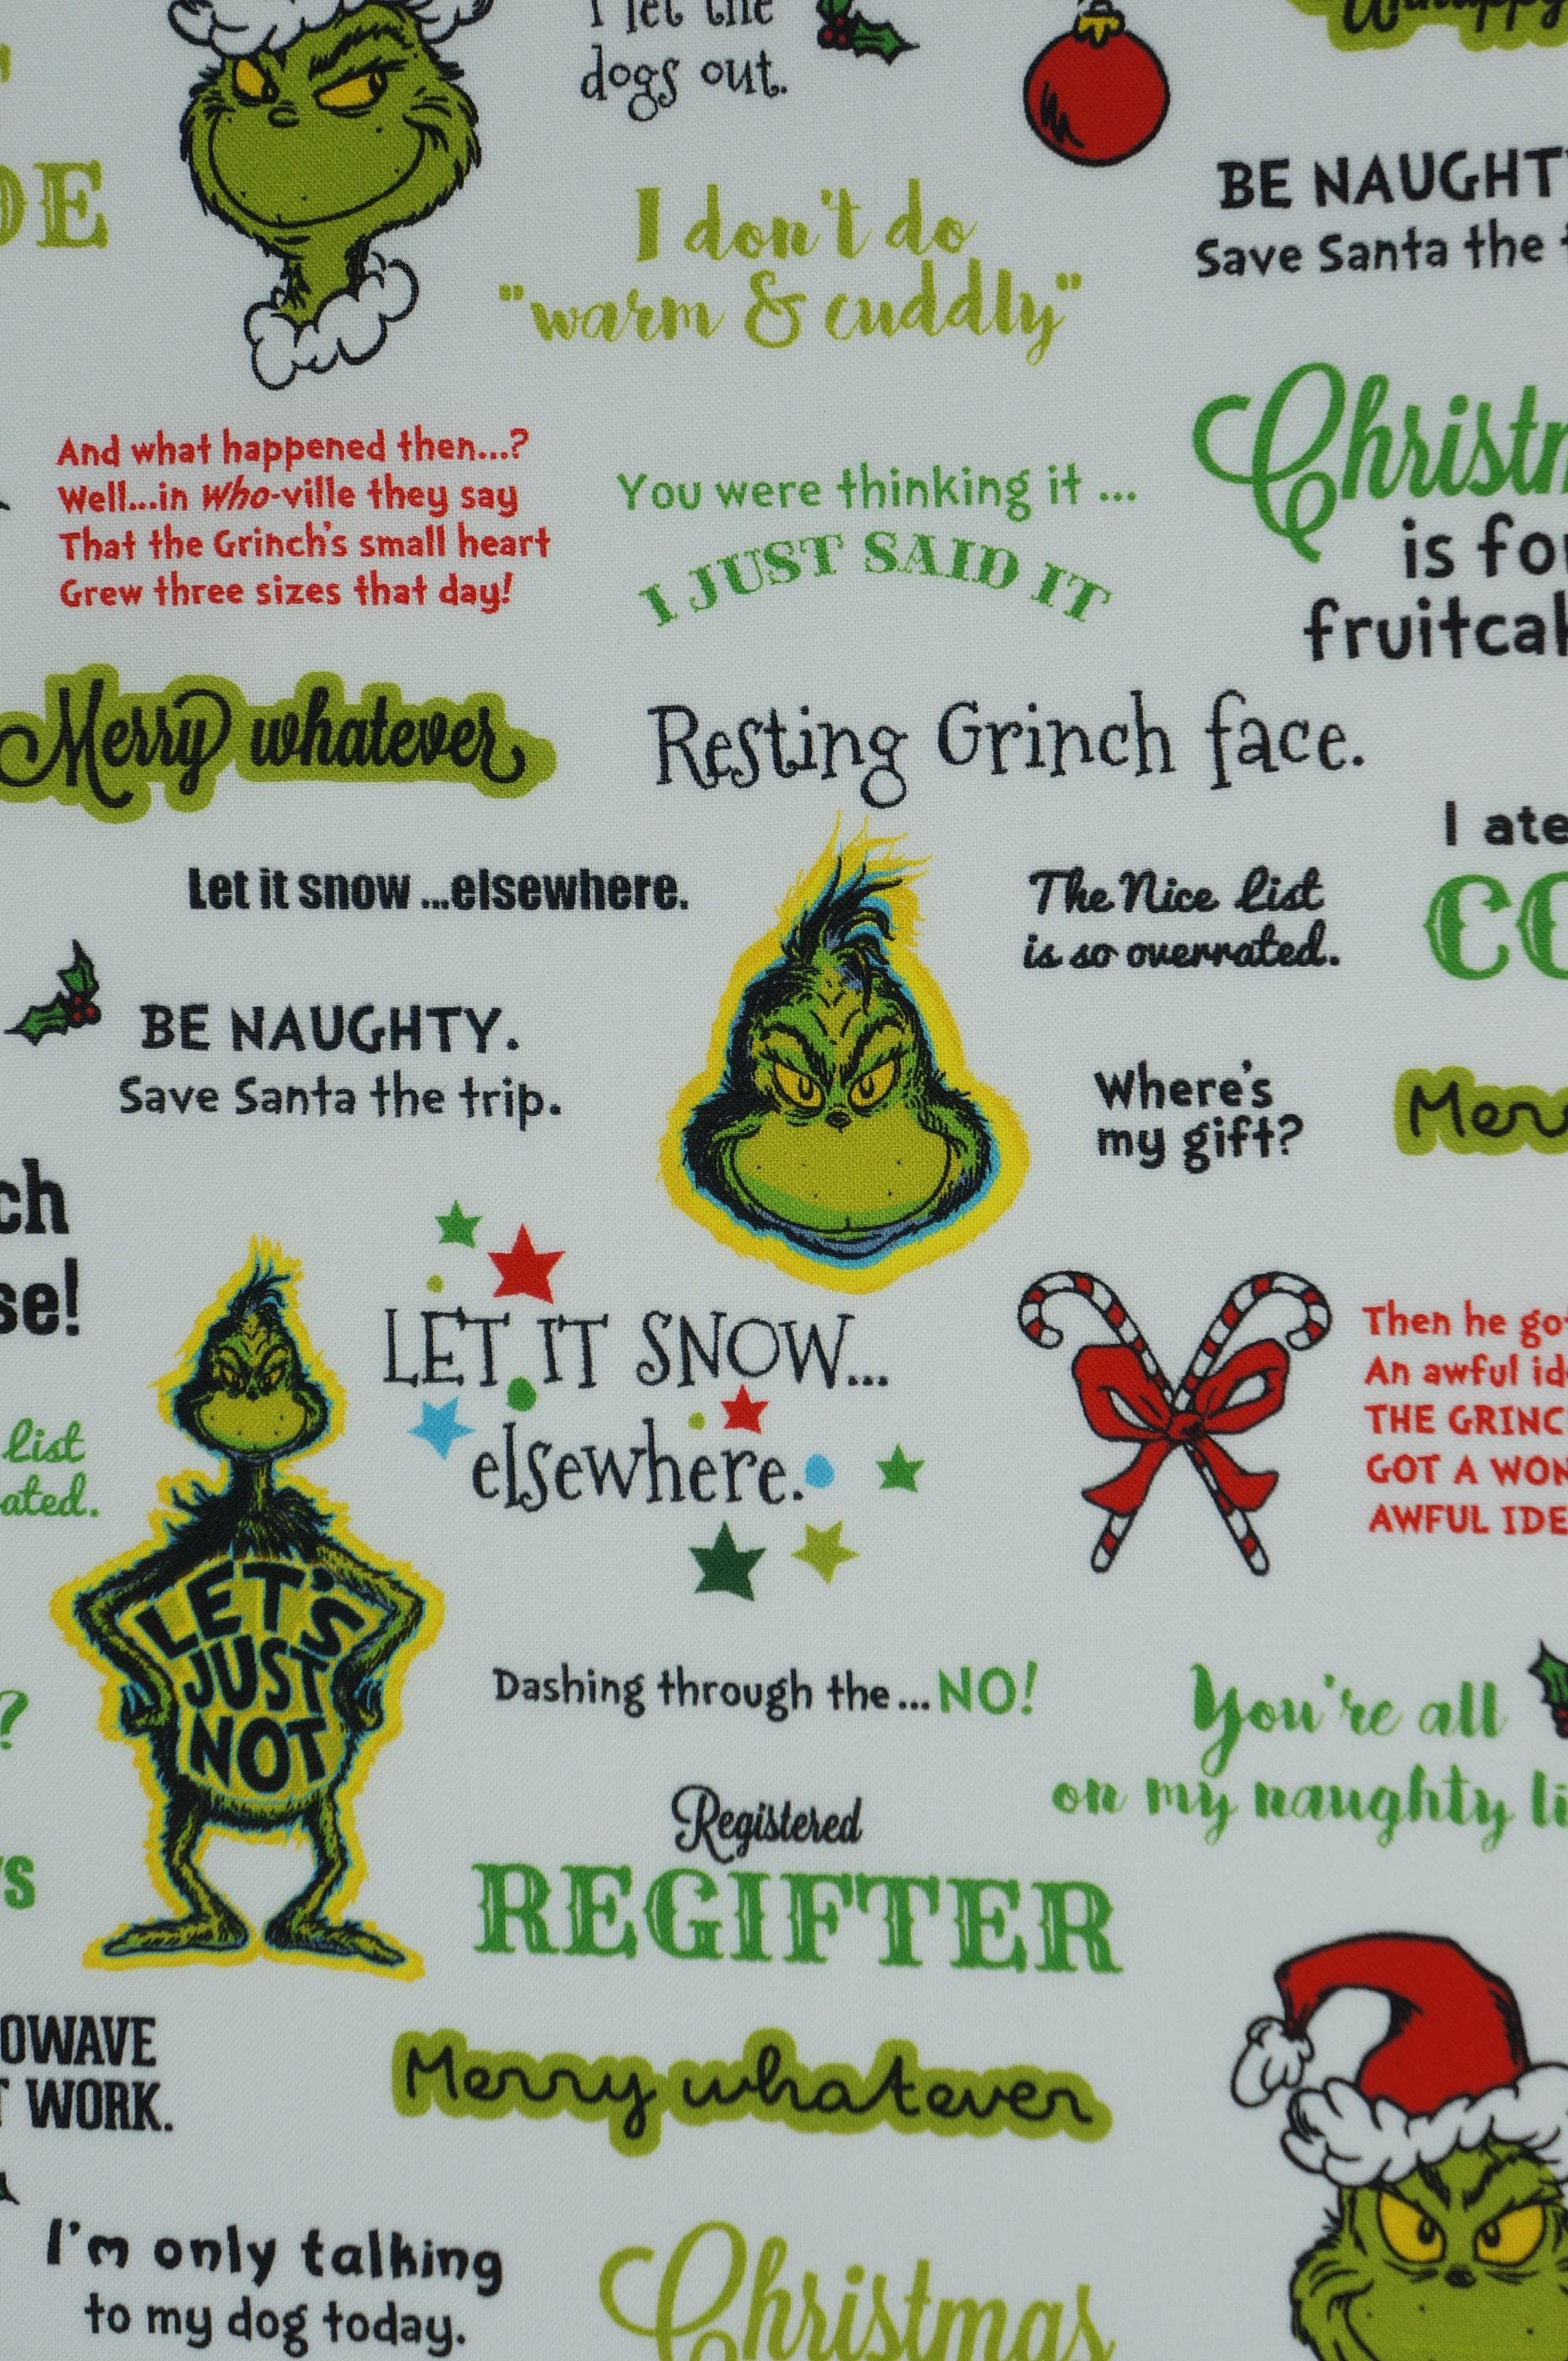 I let the
dogs out.
DE
I don't do
"warm & cuddly"
BE NAUGHTY
Save Santa the
And what happened then...?
Well...in Who-ville they say
That the Grinch's small heart
Grew three sizes that day!
You were thinking it ...
I JUST SAID IT
Christm
is for
fruitcak
Merry whatever
Resting Grinch face.
I ate
CO
Let it snow ...elsewhere.
The Nice List
is so overrated.
BE NAUGHTY.
Save Santa the trip.
Where's
my gift?
Mer
ch
se!
LET IT SNOW...
elsewhere.
Then he go
An awful id
THE GRINC
GOT A WON
AWFUL IDE
list
ated.
LET'S
JUST
NOT
?
Dashing through the... NO!
You're all
on my naughty li
Registered
REGIFTER
s
OWAVE
T WORK.
Merry whatever
I'm only talking
to my dog today.
Christmas